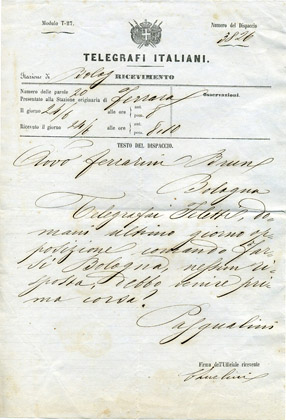 Modulo T-27.
Numero del Dispaccio
3826
TELEGRAFI ITALIANI.
Stazione di Bolog
RICEVIMENTO
Numero delle parole 20
Osservazioni.
Presentato alla Stazione originaria di Ferrara
Il giorno 24/6 alle ore ant. pom.
Ricevuto il giorno 24/6 alle ore ant. pom. 8.10
TESTO DEL DISPACCIO.
Avvo Ferrarini
Bologna
Telegrafai do
mani ultimo giorno op
posizione comando
Bologna, nessun ri
sposta, debbo venire pri
ma corsa?
Pasqualini
Firma dell'Ufficiale ricevente